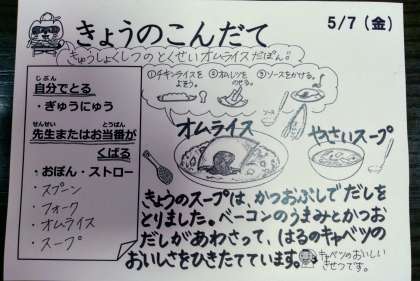 きょうのこんだて
5/7(金)
きゅうしょくしつのとくせいオムライスだぽん。
①チキンライスをよそう。
②オムレツをのせる。
③ソースをかける。
じぶん
自分でとる
・ぎゅうにゅう
せんせい とうばん
先生またはお当番が
くばる
・おぼん・ストロー
・スプーン
・フォーク
・オムライス
・スープ
オムライス
やさいスープ
きょうのスープは、かつおぶしでだしを
とりました。ベーコンのうまみとかつお
だしがあわさって、はるのキャベツの
おいしさをひきたてています。
キャベツのおいしい
きせつです。